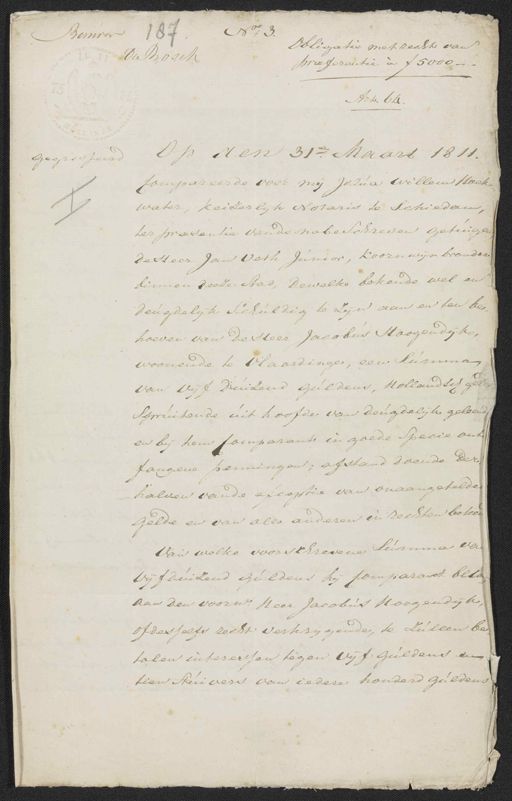 187
N.ro 3.
de Bosch
Obligatie met recht van
preferentie à ƒ 5000,--
Act. 64.
gegrosseerd
Op den 31.en Maart 1811.
Compareerde voor mij Josua Willem Hoek-
water, Keizerlijk Notaris te Schiedam,
ter presentie van de nabeschreven getuigen
de Heer Jan Vath, Junior, Koornwijnbrander
binnen deeze Stad, dewelke bekende wel en
deugdelijk Schuldig te zijn aan en ten be-
hoeven van de Heer Jacobus Hoogendijk,
woonende te Vlaardingen, een Summa
van Vijf Duizend guldens, Hollandsch geld,
Spruitende uit hoofde van deugdelijk geleende
en bij hem Comparant in goede Specie ont-
fangene penningen; afstand doende der-
halven van de exceptie van onaangetelden
gelde en van alle anderen in rechten bekend.
Van welke voorschrevene Summa van
Vijfduizend guldens hij Comparant
aan den voorn. Heer Jacobus Hoogendijk,
of deszelfs recht verkrijgende, te zullen be-
talen interessen tegen Vijf guldens en
tien Stuivers van iedere honderd guldens